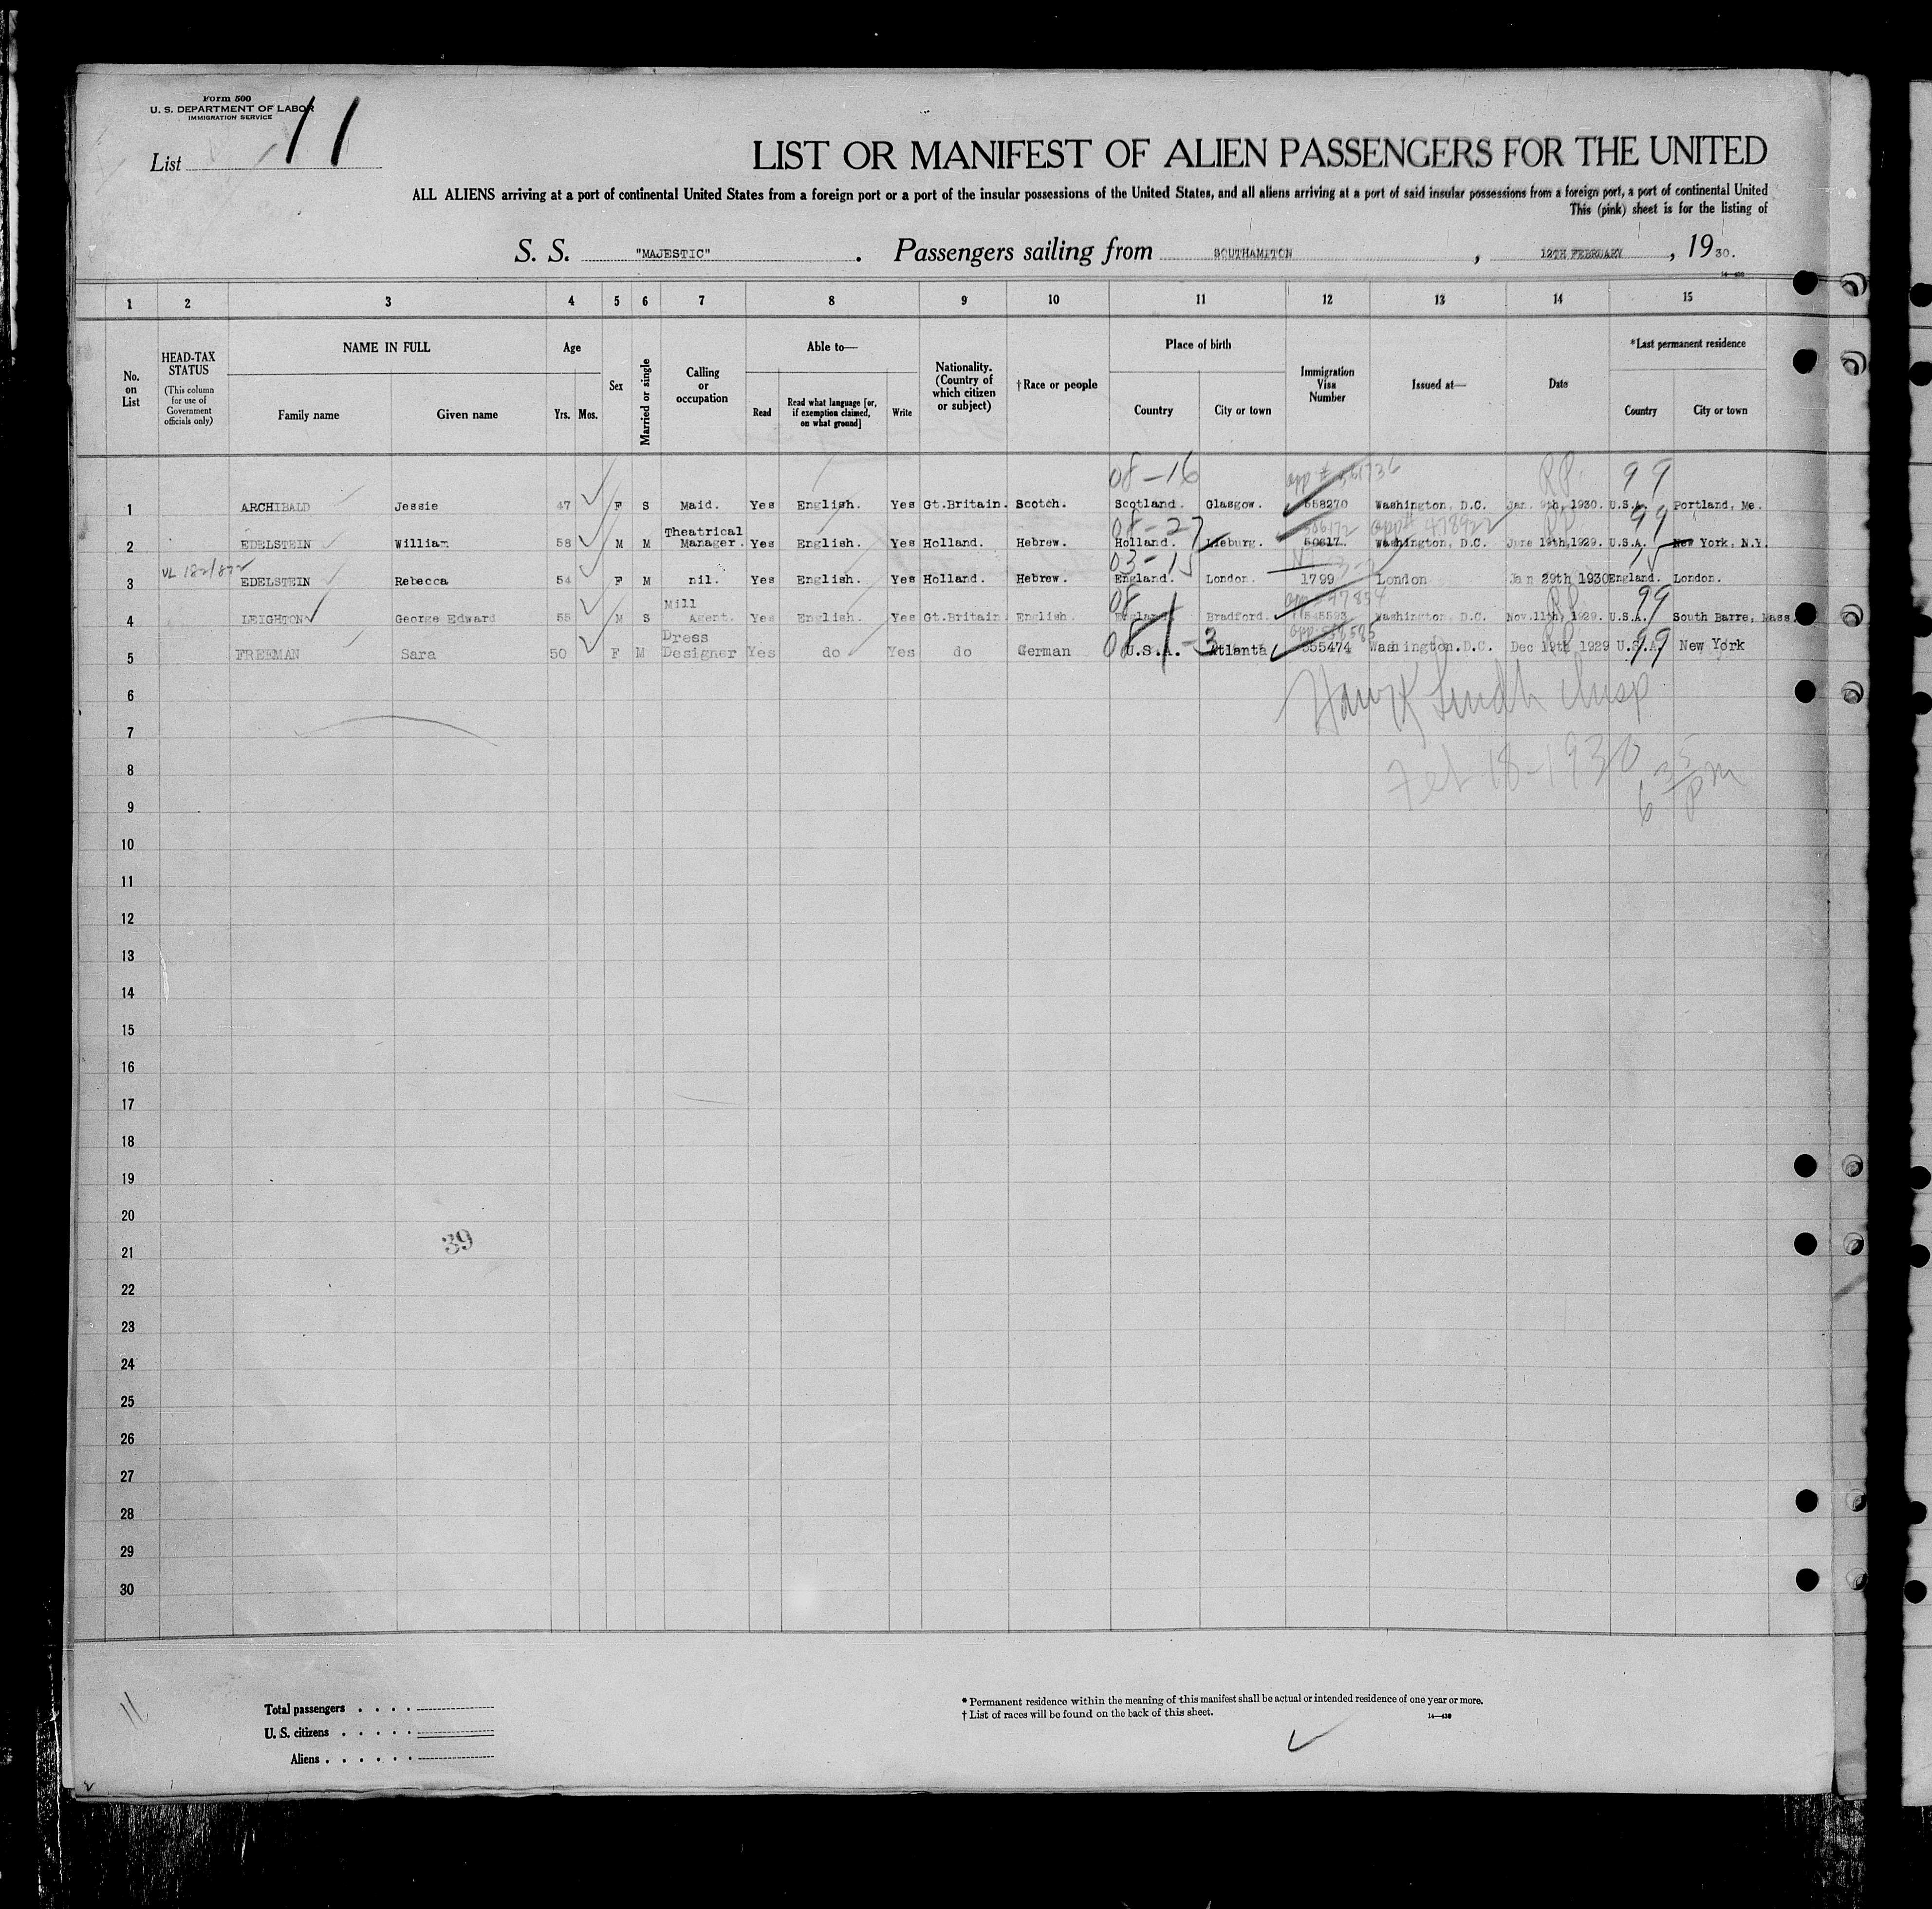 Form 500
U. S. DEPARTMENT OF LABOR
IMMIGRATION SERVICE
List 11
LIST OR MANIFEST OF ALIEN PASSENGERS FOR THE UNITED
ALL ALIENS arriving at a port of continental United States from a foreign port or a port of the insular possessions of the United States, and all aliens arriving at a port of said insular possessions from a foreign port, a port of continental United
This (pink) sheet is for the listing of
S. S. "MAJESTIC" . Passengers sailing from SOUTHAMPTON , 12TH FEBRUARY , 1930.
1 2 3 4 5 6 7 8 9 10 11 12 13 14 15
No. on List
HEAD-TAX STATUS (This column for use of Government officials only)
NAME IN FULL
Family name Given name
Age
Yrs. Mos.
Sex
Married or single
Calling or occupation
Able to—
Read Read what language [or, if exemption claimed, on what ground] Write
Nationality. (Country of which citizen or subject)
†Race or people
Place of birth
Country City or town
Immigration Visa Number
Issued at—
Date
*Last permanent residence
Country City or town
08-16 app # 561736 R.P. 99
1 ARCHIBALD Jessie 47 F S Maid. Yes English. Yes Gt.Britain. Scotch. Scotland. Glasgow. 558270 Washington, D.C. Jan. 9th, 1930. U.S.A. Portland, Me.
08-27 app# 478922 R.P. 99
2 EDELSTEIN William 58 M M Theatrical Manager. Yes English. Yes Holland. Hebrew. Holland. 50617. Washington, D.C. June 19th, 1929. U.S.A. New York, N.Y.
03-15
3 EDELSTEIN Rebecca 54 F M nil. Yes English. Yes Holland. Hebrew. England. London. 1799 London Jan 29th 1930 England. London.
08 R.P. 99
4 LEIGHTON George Edward 55 M S Mill Agent. Yes English. Yes Gt.Britain English. England Bradford. 1545593 Washington, D.C. Nov.11th, 1929. U.S.A. South Barre, Mass.
08-3 R.P. 99
5 FREEMAN Sara 50 F M Dress Designer Yes do Yes do German U.S.A. Atlanta 555474 Washington.D.C. Dec 19th 1929 U.S.A. New York
Feb 18-1930
6 35 PM
6
7
8
9
10
11
12
13
14
15
16
17
18
19
20
21
22
23
24
25
26
27
28
29
30
39
11
Total passengers . . . .
U. S. citizens . . . . .
Aliens . . . . . .
* Permanent residence within the meaning of this manifest shall be actual or intended residence of one year or more.
† List of races will be found on the back of this sheet.
14—430